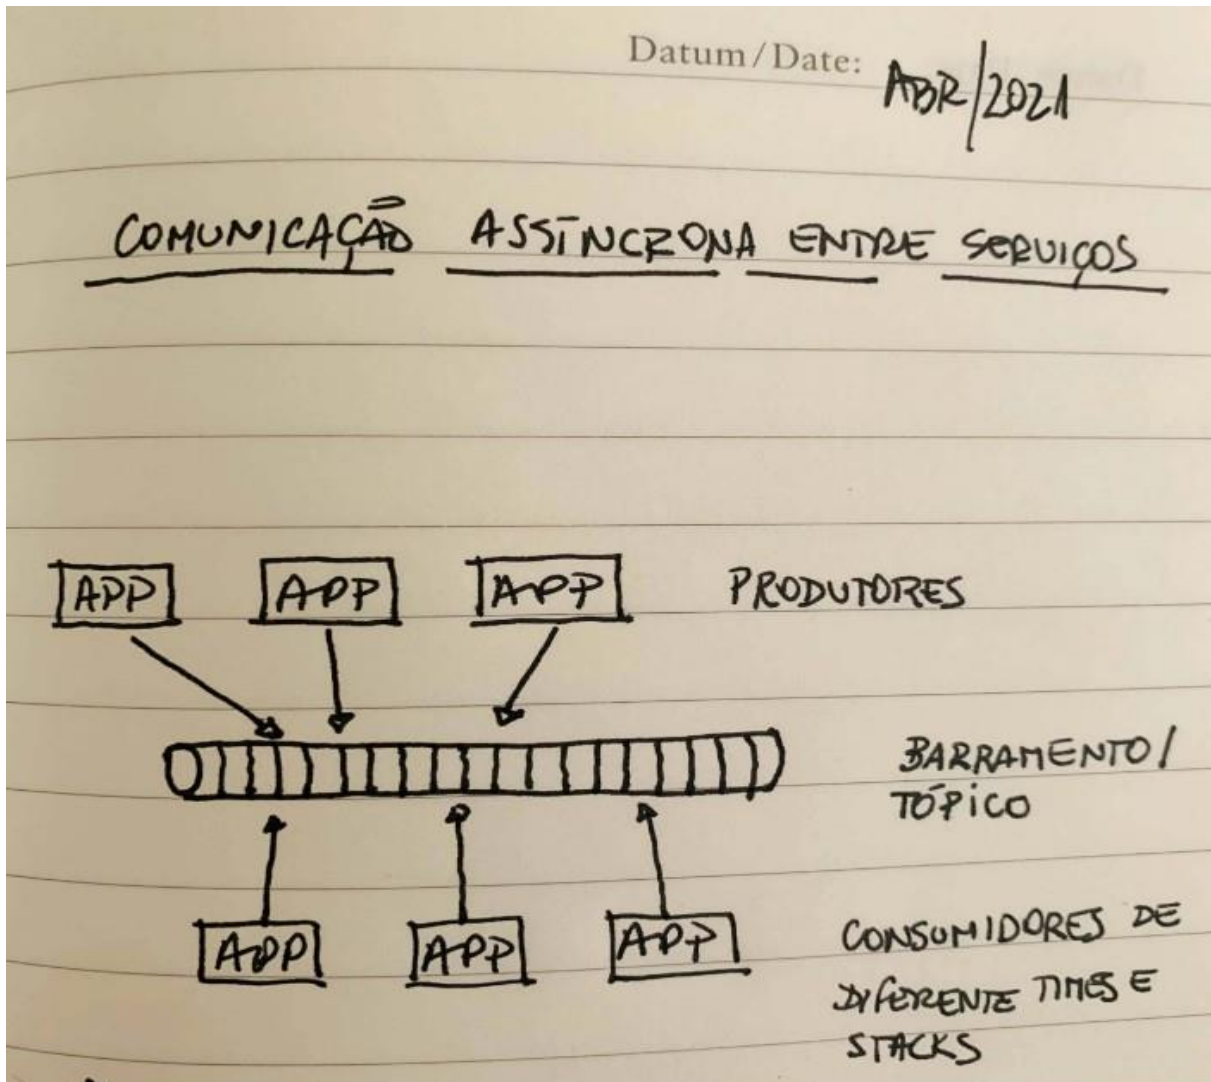 Datum/Date:
ABR/2021
COMUNICAÇÃO ASSÍNCRONA ENTRE SERVIÇOS
APP APP APP PRODUTORES
BARRAMENTO/
TÓPICO
APP APP APP
CONSUMIDORES DE
DIFERENTE TIMES E
STACKS